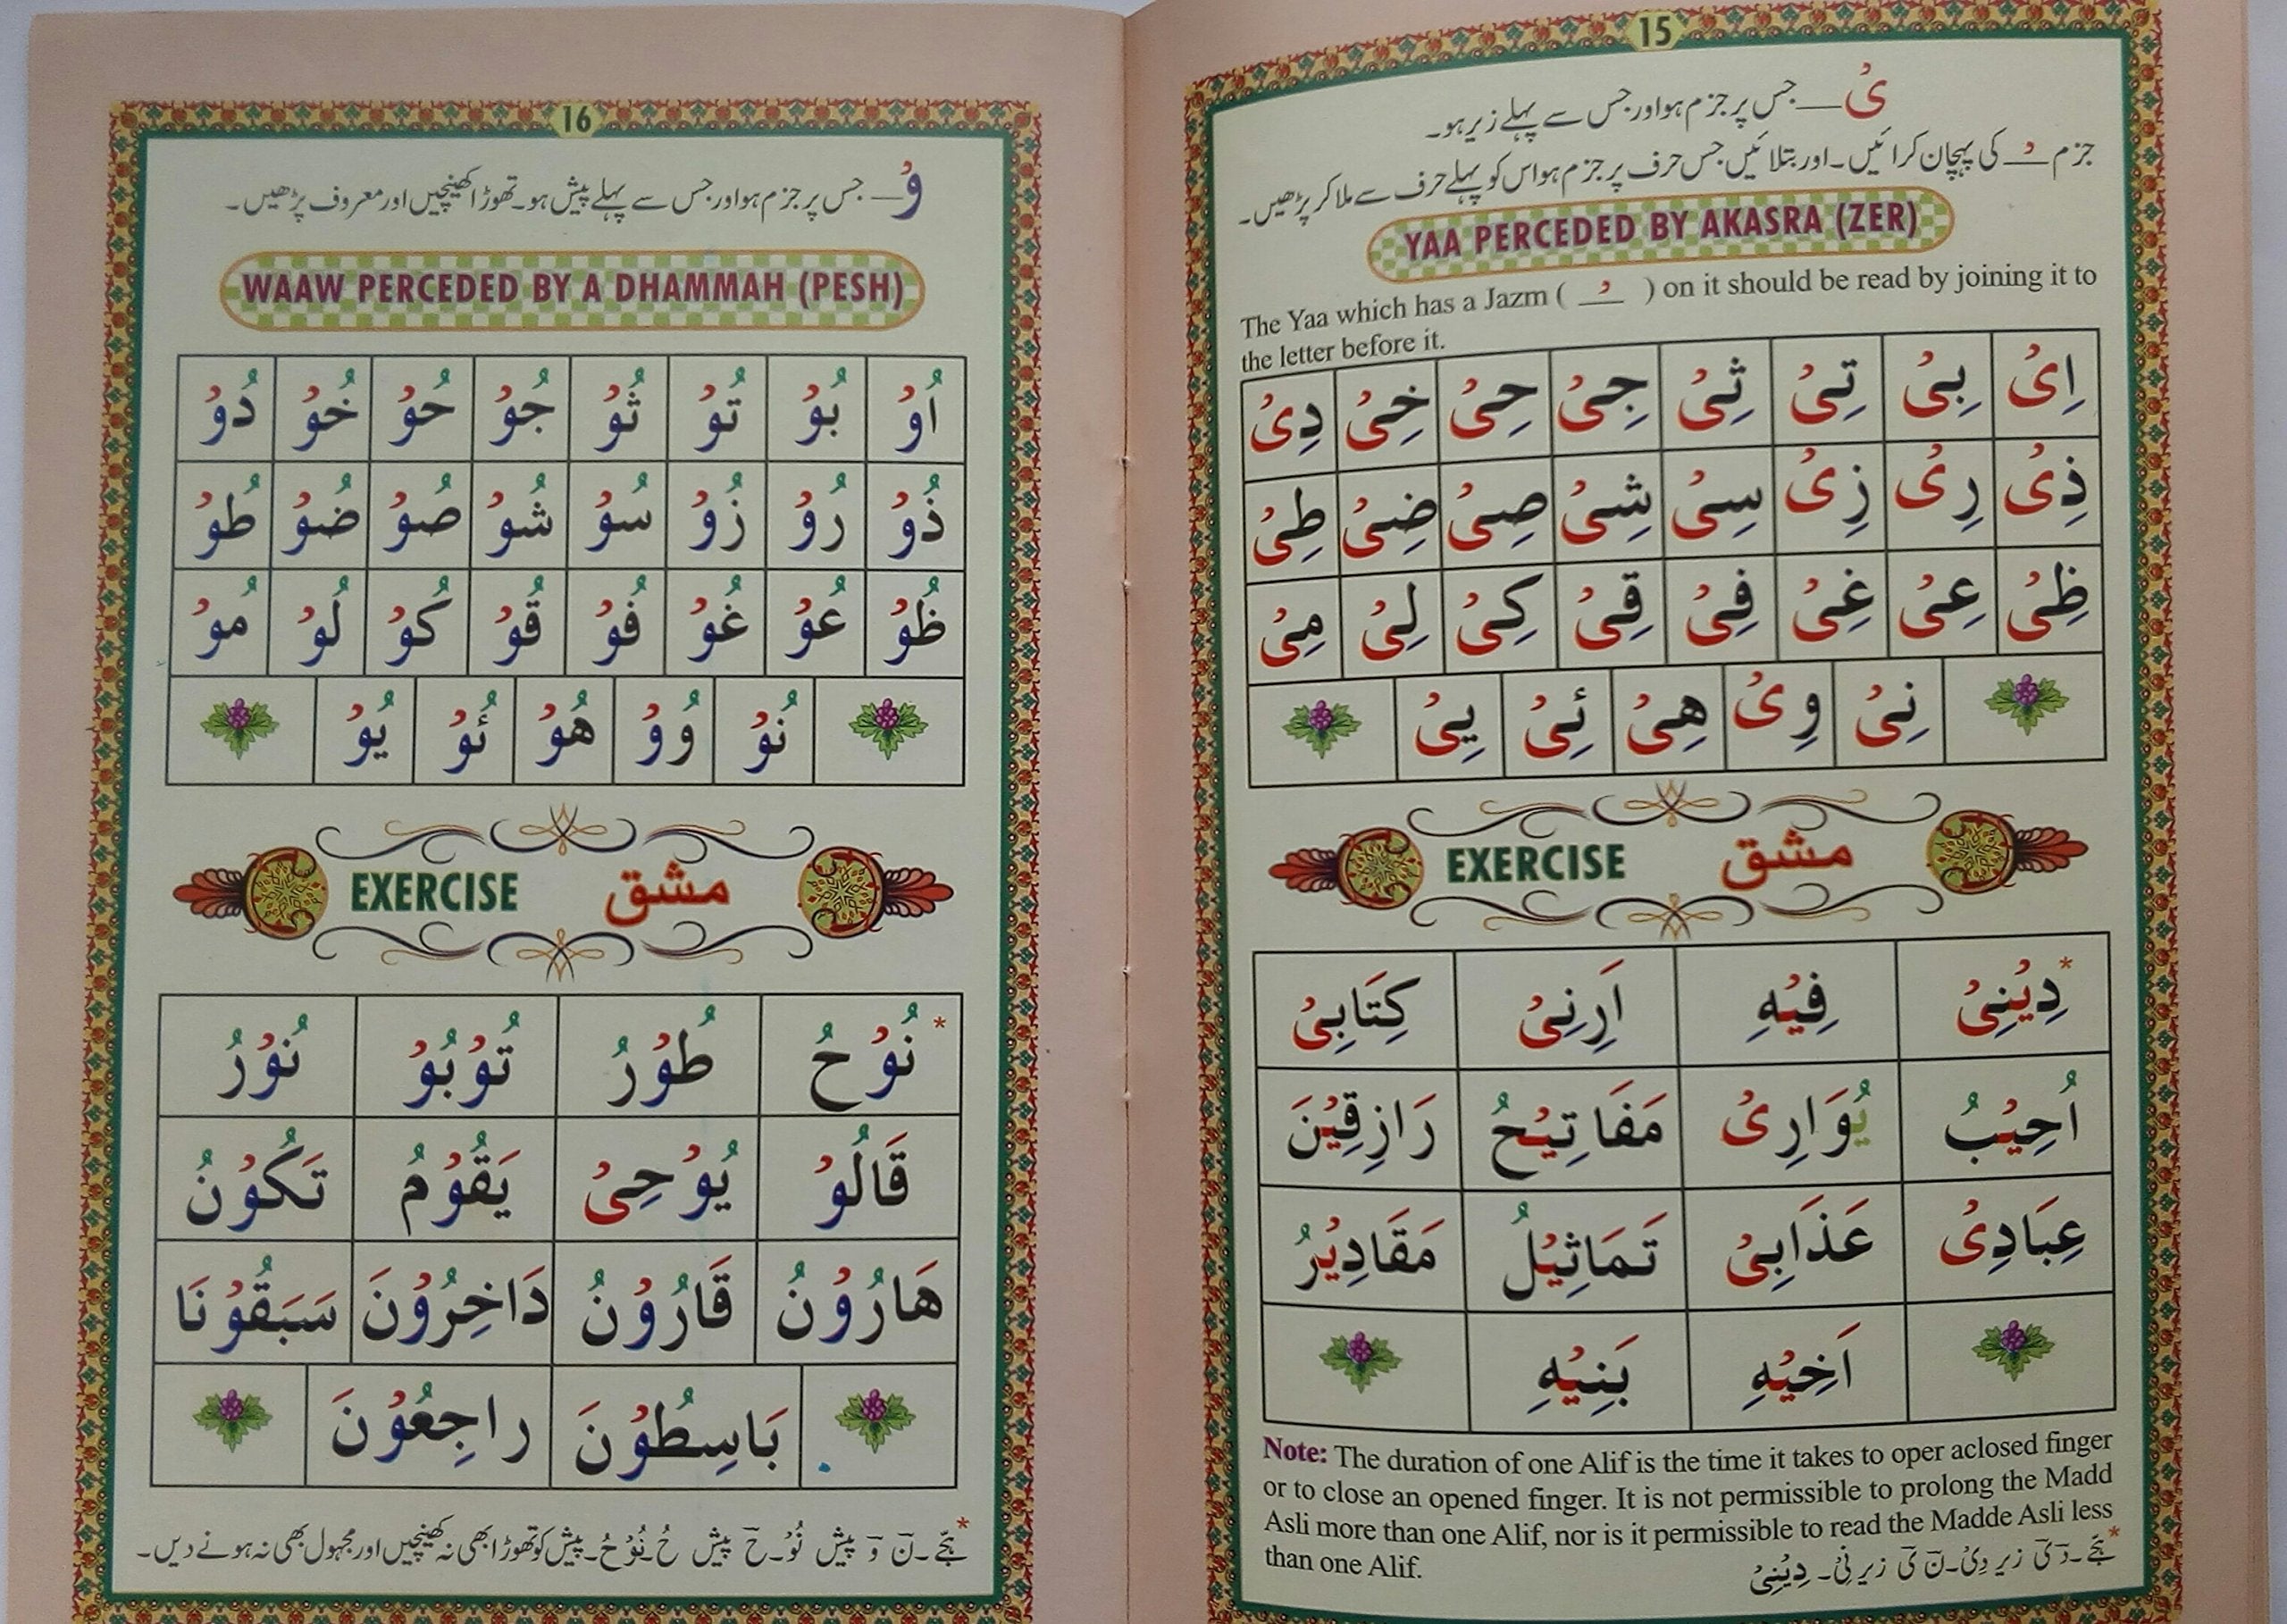 15
یْ — جس پر جزم ہو اور جس سے پہلے زیر ہو۔
جزم ـْـ کی پہچان کرائیں۔ اور بتلائیں جس حرف پر جزم ہو اس کو پہلے حرف سے ملا کر پڑھیں۔
YAA PERCEDED BY AKASRA (ZER)
The Yaa which has a Jazm ( ـْـ ) on it should be read by joining it to
the letter before it.
اِیْ بِیْ تِیْ ثِیْ جِیْ حِیْ خِیْ دِیْ
ذِیْ رِیْ زِیْ سِیْ شِیْ صِیْ ضِیْ طِیْ
ظِیْ عِیْ غِیْ فِیْ قِیْ كِیْ لِیْ مِیْ
نِیْ وِیْ هِیْ ئِیْ یِیْ
EXERCISE مشق
*دِیْنِیْ فِیْهِ اَرِنِیْ كِتَابِیْ
اُحِیْبُ یُوَارِیْ مَفَاتِیْحُ رَازِقِیْنَ
عِبَادِیْ عَذَابِیْ تَمَاثِیْلُ مَقَادِیْرُ
اَخِیْهِ بَنِیْهِ
Note: The duration of one Alif is the time it takes to oper aclosed finger
or to close an opened finger. It is not permissible to prolong the Madd
Asli more than one Alif, nor is it permissible to read the Madde Asli less
than one Alif.
* ہجے۔ دَ یَ زیر دِیْ۔ نَ یَ زیر نِیْ۔ دِیْنِیْ
16
وْ — جس پر جزم ہو اور جس سے پہلے پیش ہو۔ تھوڑا کھینچیں اور معروف پڑھیں۔
WAAW PERCEDED BY A DHAMMAH (PESH)
اُوْ بُوْ تُوْ ثُوْ جُوْ حُوْ خُوْ دُوْ
ذُوْ رُوْ زُوْ سُوْ شُوْ صُوْ ضُوْ طُوْ
ظُوْ عُوْ غُوْ فُوْ قُوْ كُوْ لُوْ مُوْ
نُوْ وُوْ هُوْ ئُوْ یُوْ
EXERCISE مشق
*نُوْحُ طُوْرُ تُوْبُوْ نُوْرُ
قَالُوْ یُوْحِیْ یَقُوْمُ تَكُوْنُ
هَارُوْنُ قَارُوْنُ دَاخِرُوْنَ سَبَقُوْنَا
بَاسِطُوْنَ راجِعُوْنَ
* ہجے۔ نَ وَ پیش نُوْ۔ حَ پیش حُ۔ نُوْحُ۔ پیش کو تھوڑا بھی نہ کھینچیں اور مجہول بھی نہ ہونے دیں۔